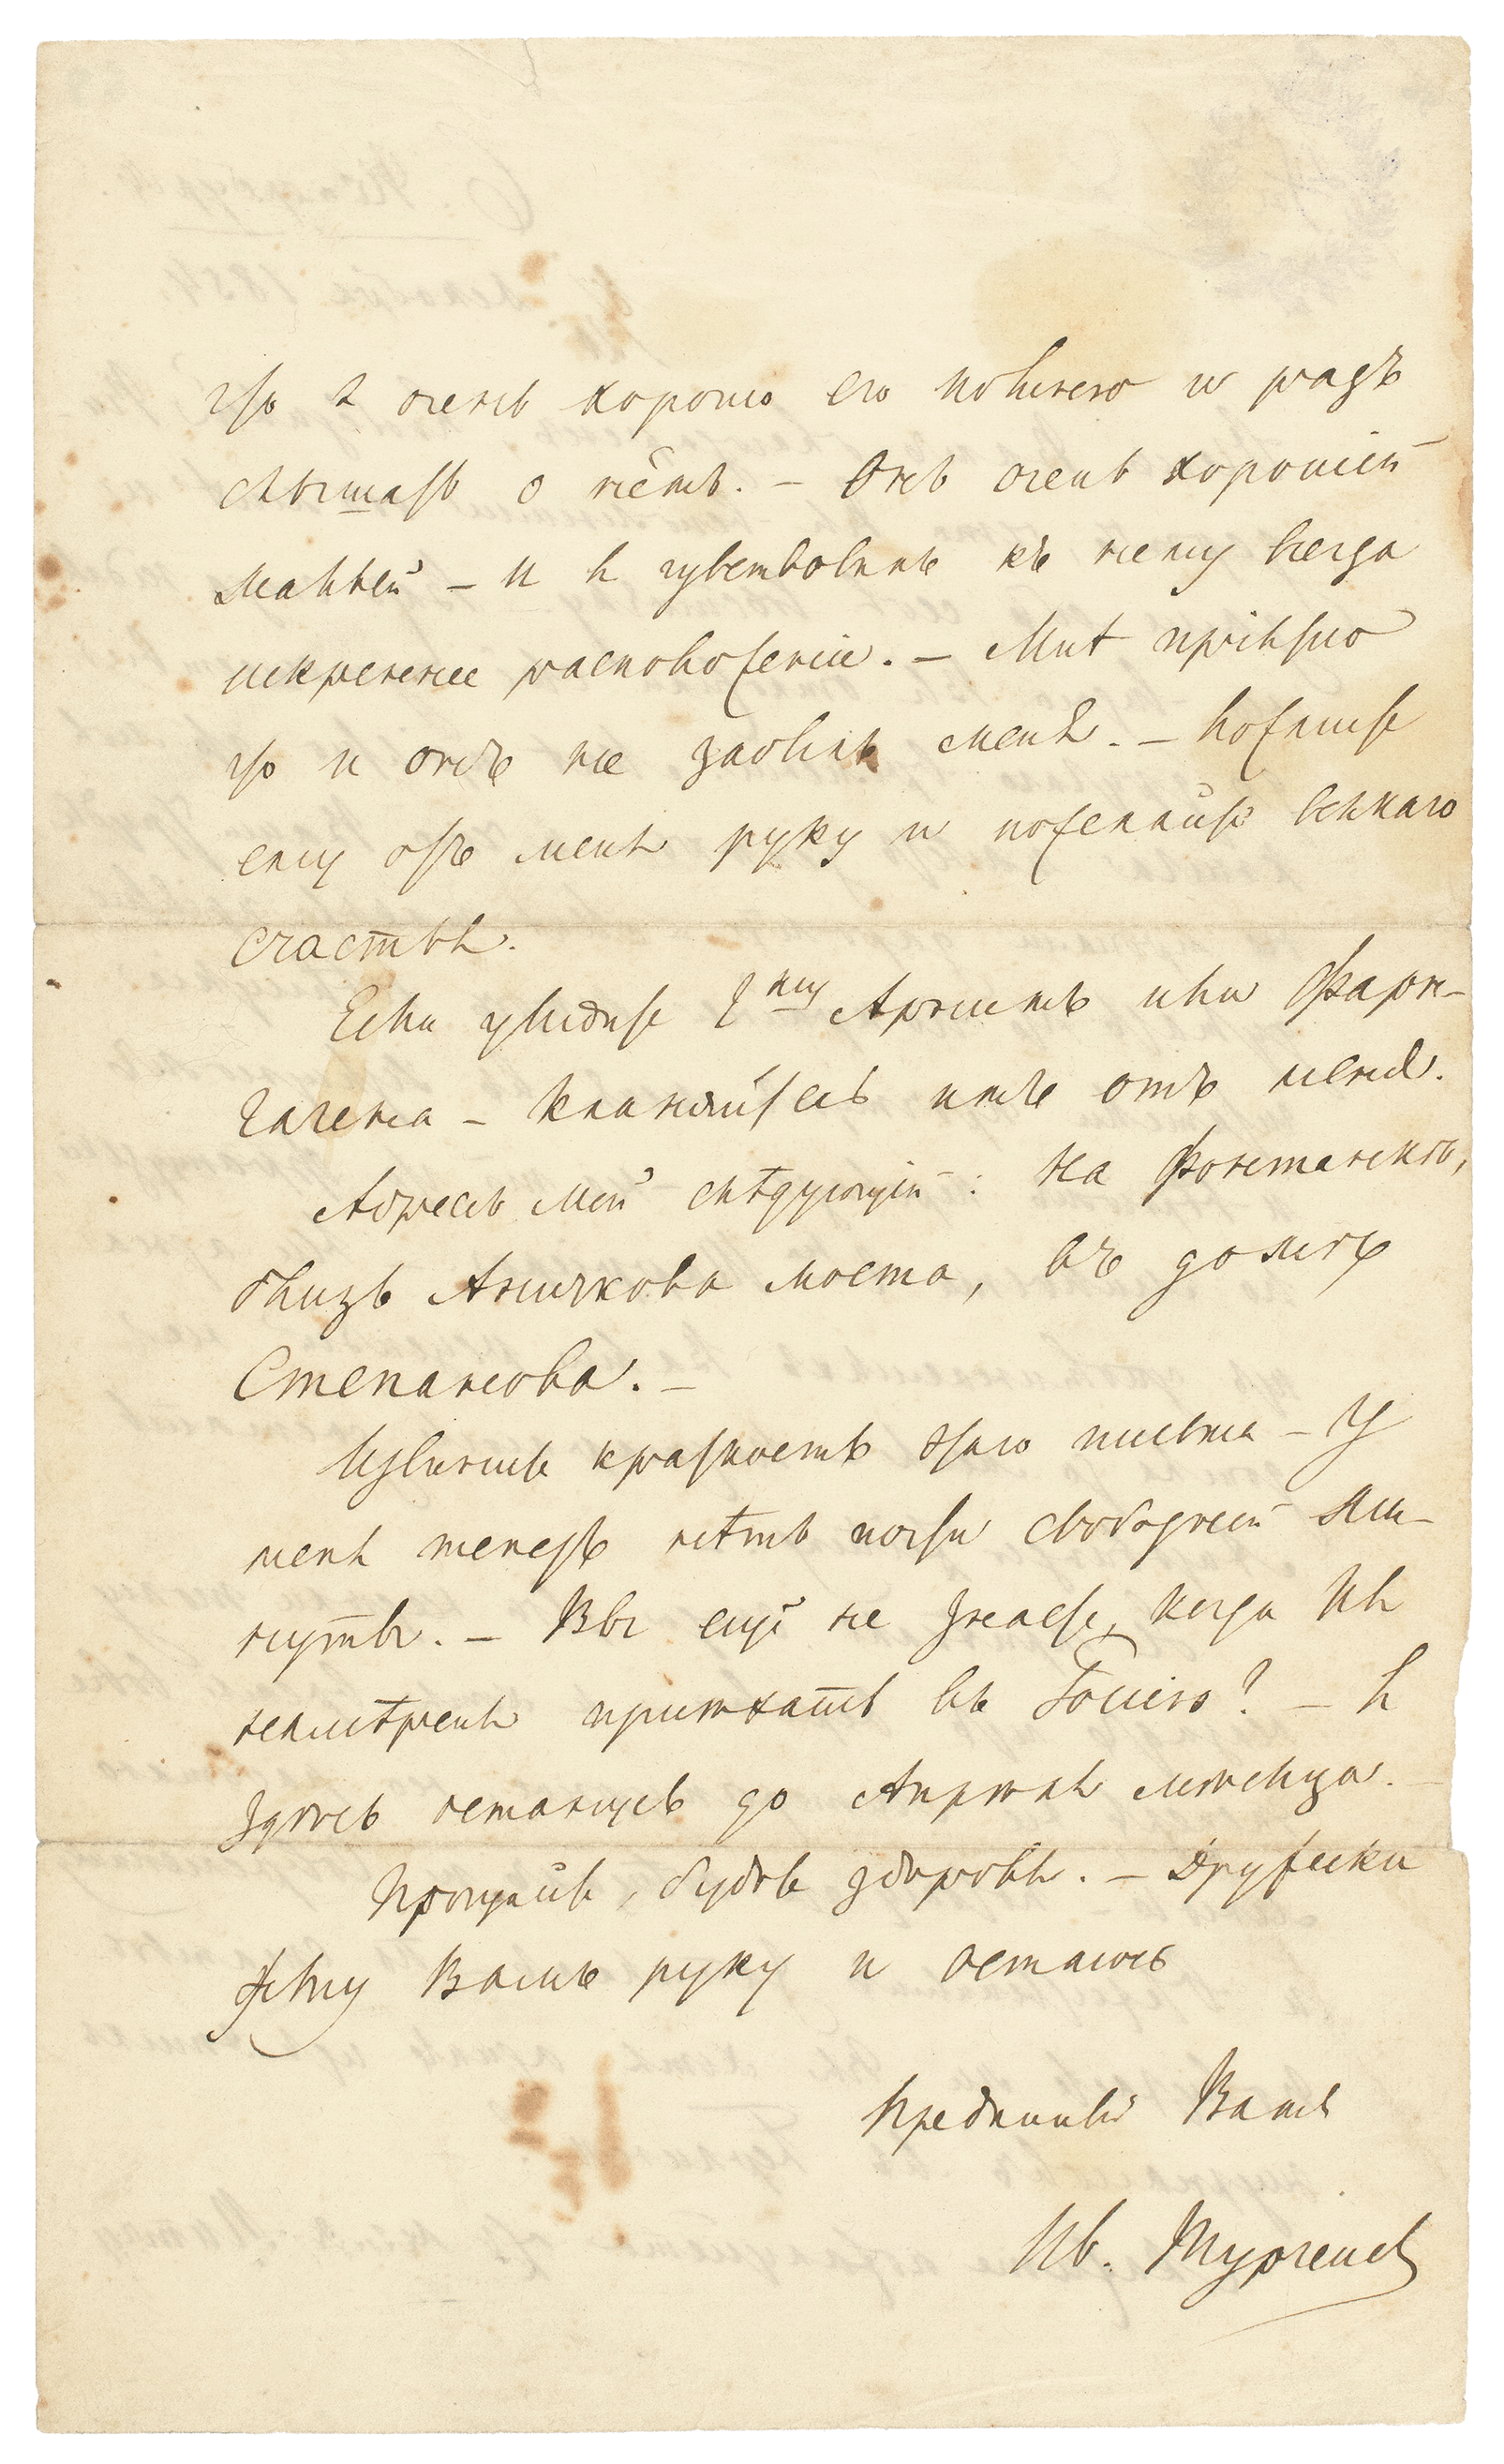 что я очень хорошо его помню и радъ
слышать о нёмъ. – Онъ очень хорошій
малый – и я чувствовалъ къ нему всегда
искреннее расположеніе. – Мнѣ пріятно
что и онъ не забылъ меня. – Пожмите
ему отъ меня руку и пожелайте всякаго
счастья.
Если увидите Г-жу Арнимъ или Фарн-
гагена – кланяйтесь имъ отъ меня.
Адрессъ мой слѣдующій: На Фонтанкѣ,
близъ Аничкова моста, въ домѣ
Степанова. –
Извините краткость этого письма – У
меня теперь нѣтъ почти свободной ми-
нуты. – Вы ещё не знаете, когда Вы
намѣрены пріѣхать въ Россію? – Я
здѣсь останусь до Апрѣля мѣсяца. –
Прощайте, будьте здоровы. – Дружески
жму Вамъ руку и остаюсь
Преданный Вамъ
Ив. Тургенев